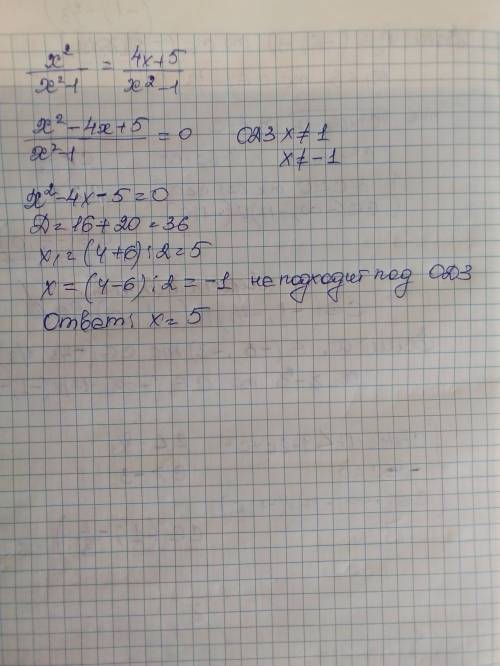 x²/(x²-1) = (4x+5)/(x²-1)
(x²-4x+5)/(x²-1) = 0 ОДЗ x≠1
x≠-1
x²-4x-5=0
Д=16+20=36
x₁=(4+6):2=5
x=(4-6):2=-1 не подходит под ОДЗ
Ответ: x=5